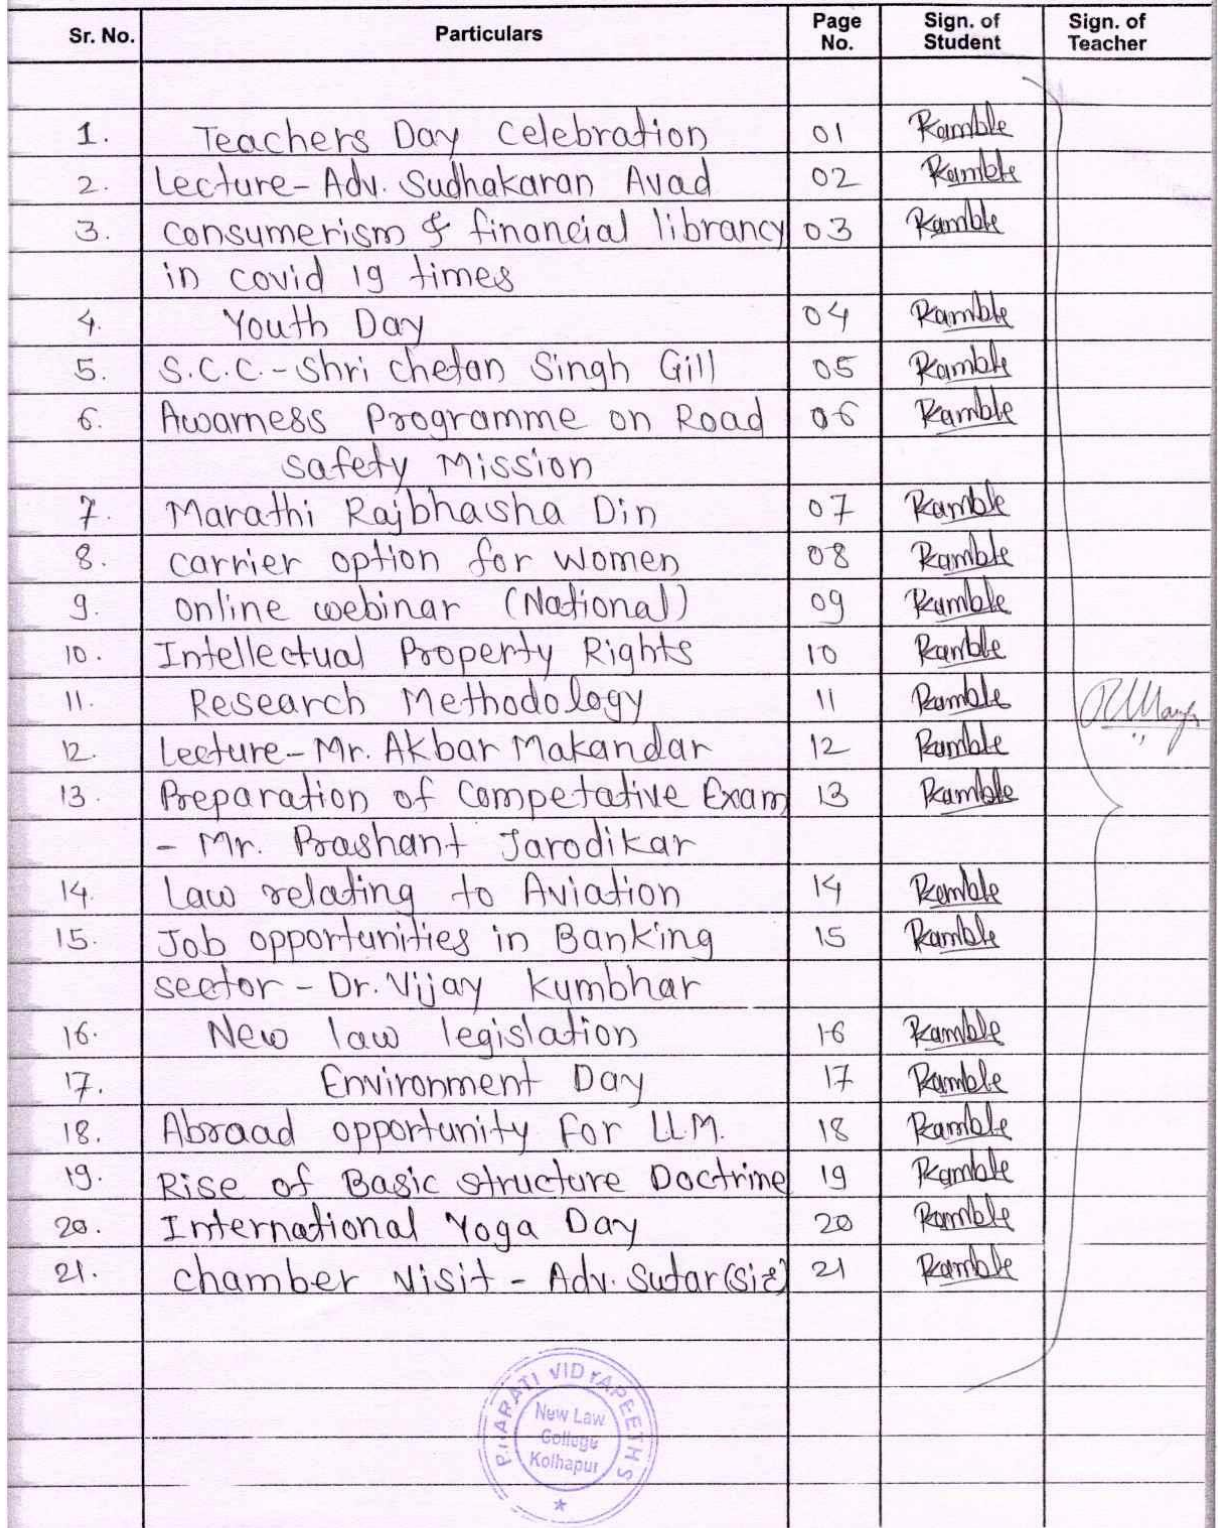 Sr. No. Particulars Page No. Sign. of Student Sign. of Teacher
1. Teachers Day Celebration 01 Ramble
2. Lecture- Adv. Sudhakaran Avad 02 Ramble
3. consumerism & financial librancy 03 Ramble
in covid 19 times
4. Youth Day 04 Ramble
5. S.C.C.- Shri chetan Singh Gill 05 Ramble
6. Awarness Programme on Road 06 Ramble
safety Mission
7. Marathi Rajbhasha Din 07 Ramble
8. carrier option for women 08 Ramble
9. online webinar (National) 09 Ramble
10. Intellectual Property Rights 10 Ramble
11. Research Methodology 11 Ramble
12. Lecture- Mr. Akbar Makandar 12 Ramble
13. Preparation of Competative Exam 13 Ramble
- Mr. Prashant Jarodikar
14. Law relating to Aviation 14 Ramble
15. Job opportunities in Banking 15 Ramble
sector - Dr. Vijay Kumbhar
16. New law legislation 16 Ramble
17. Environment Day 17 Ramble
18. Abroad opportunity for LLM. 18 Ramble
19. Rise of Basic structure Doctrine 19 Ramble
20. International Yoga Day 20 Ramble
21. chamber visit - Adv. Sutar (sir) 21 Ramble
BHARATI VIDYAPEETH'S
New Law
College
Kolhapur